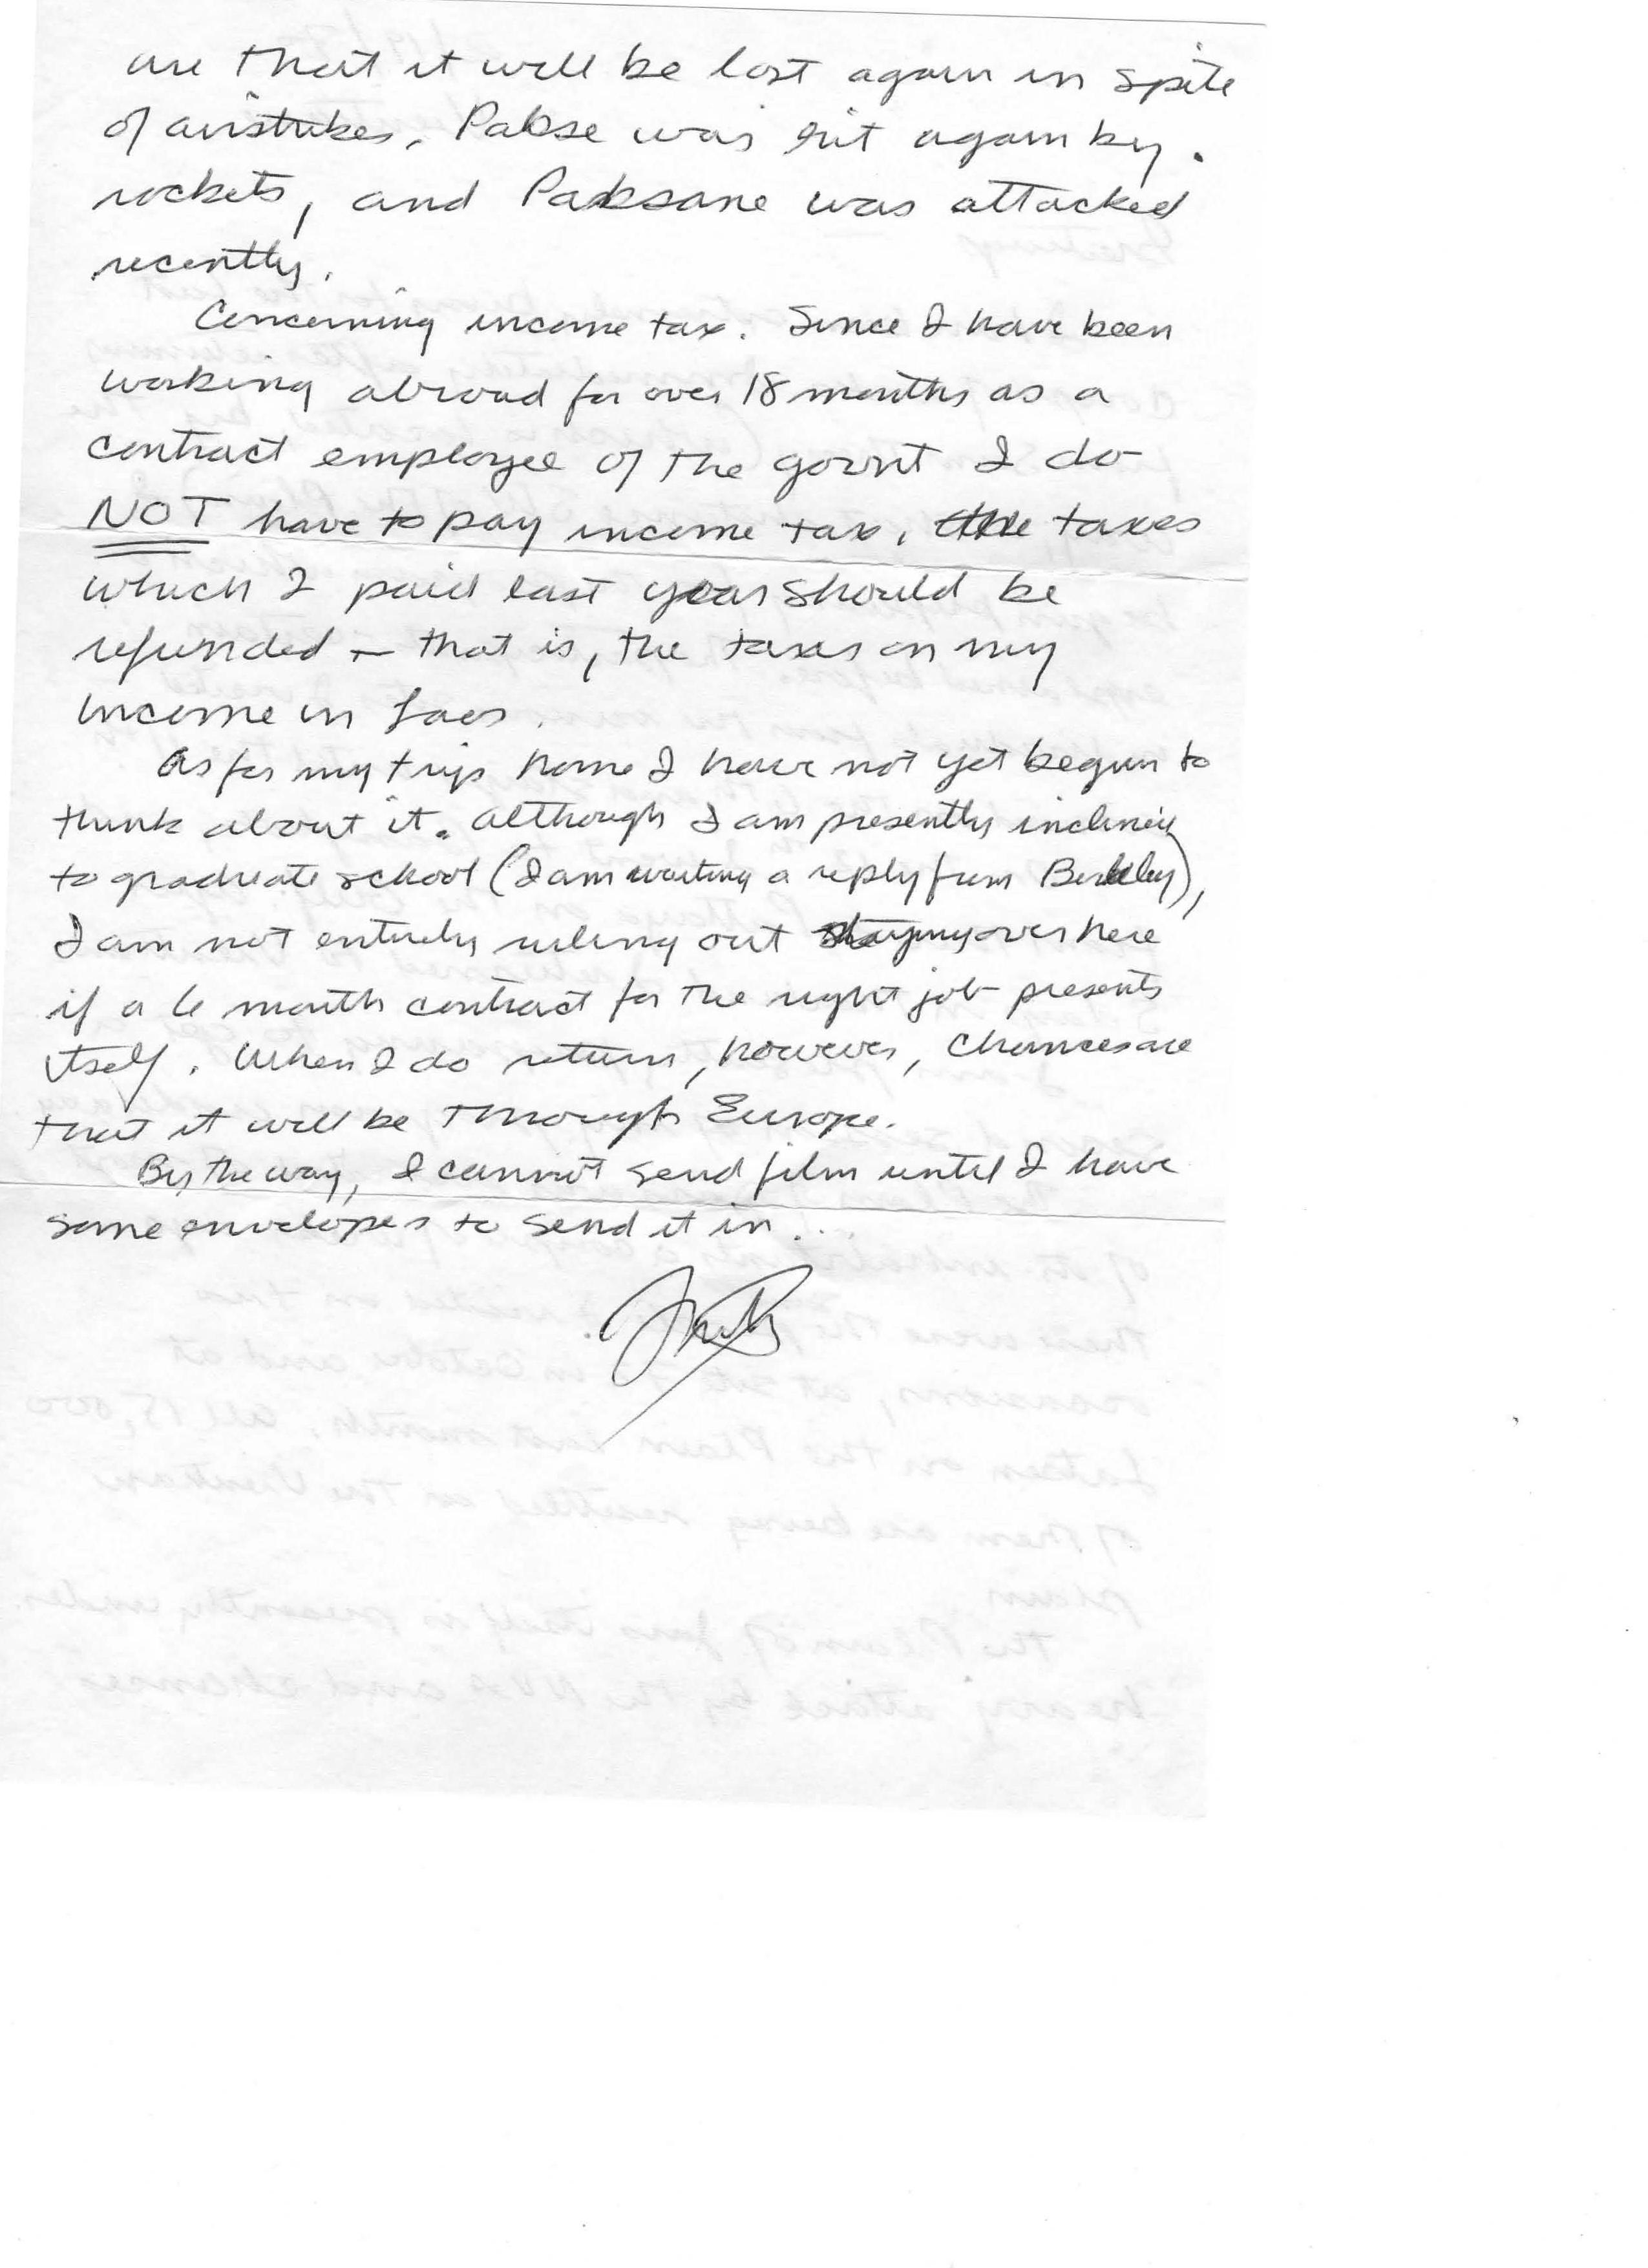 are that it will be lost again in spite
of airstrikes. Pakse was hit again by
rockets, and Paksane was attacked
recently.
Concerning income tax. Since I have been
working abroad for over 18 months as a
contract employee of the govn't I do
NOT have to pay income tax. The taxes
which I paid last year should be
refunded - that is, the taxes on my
income in Laos.
As for my trip home I have not yet begun to
think about it. Although I am presently inclined
to graduate school (I am waiting a reply from Berkley),
I am not entirely ruling out staying over here
if a 6 month contract for the right job presents
itself. When I do return, however, chances are
that it will be through Europe.
By the way, I cannot send film until I have
some envelopes to send it in...